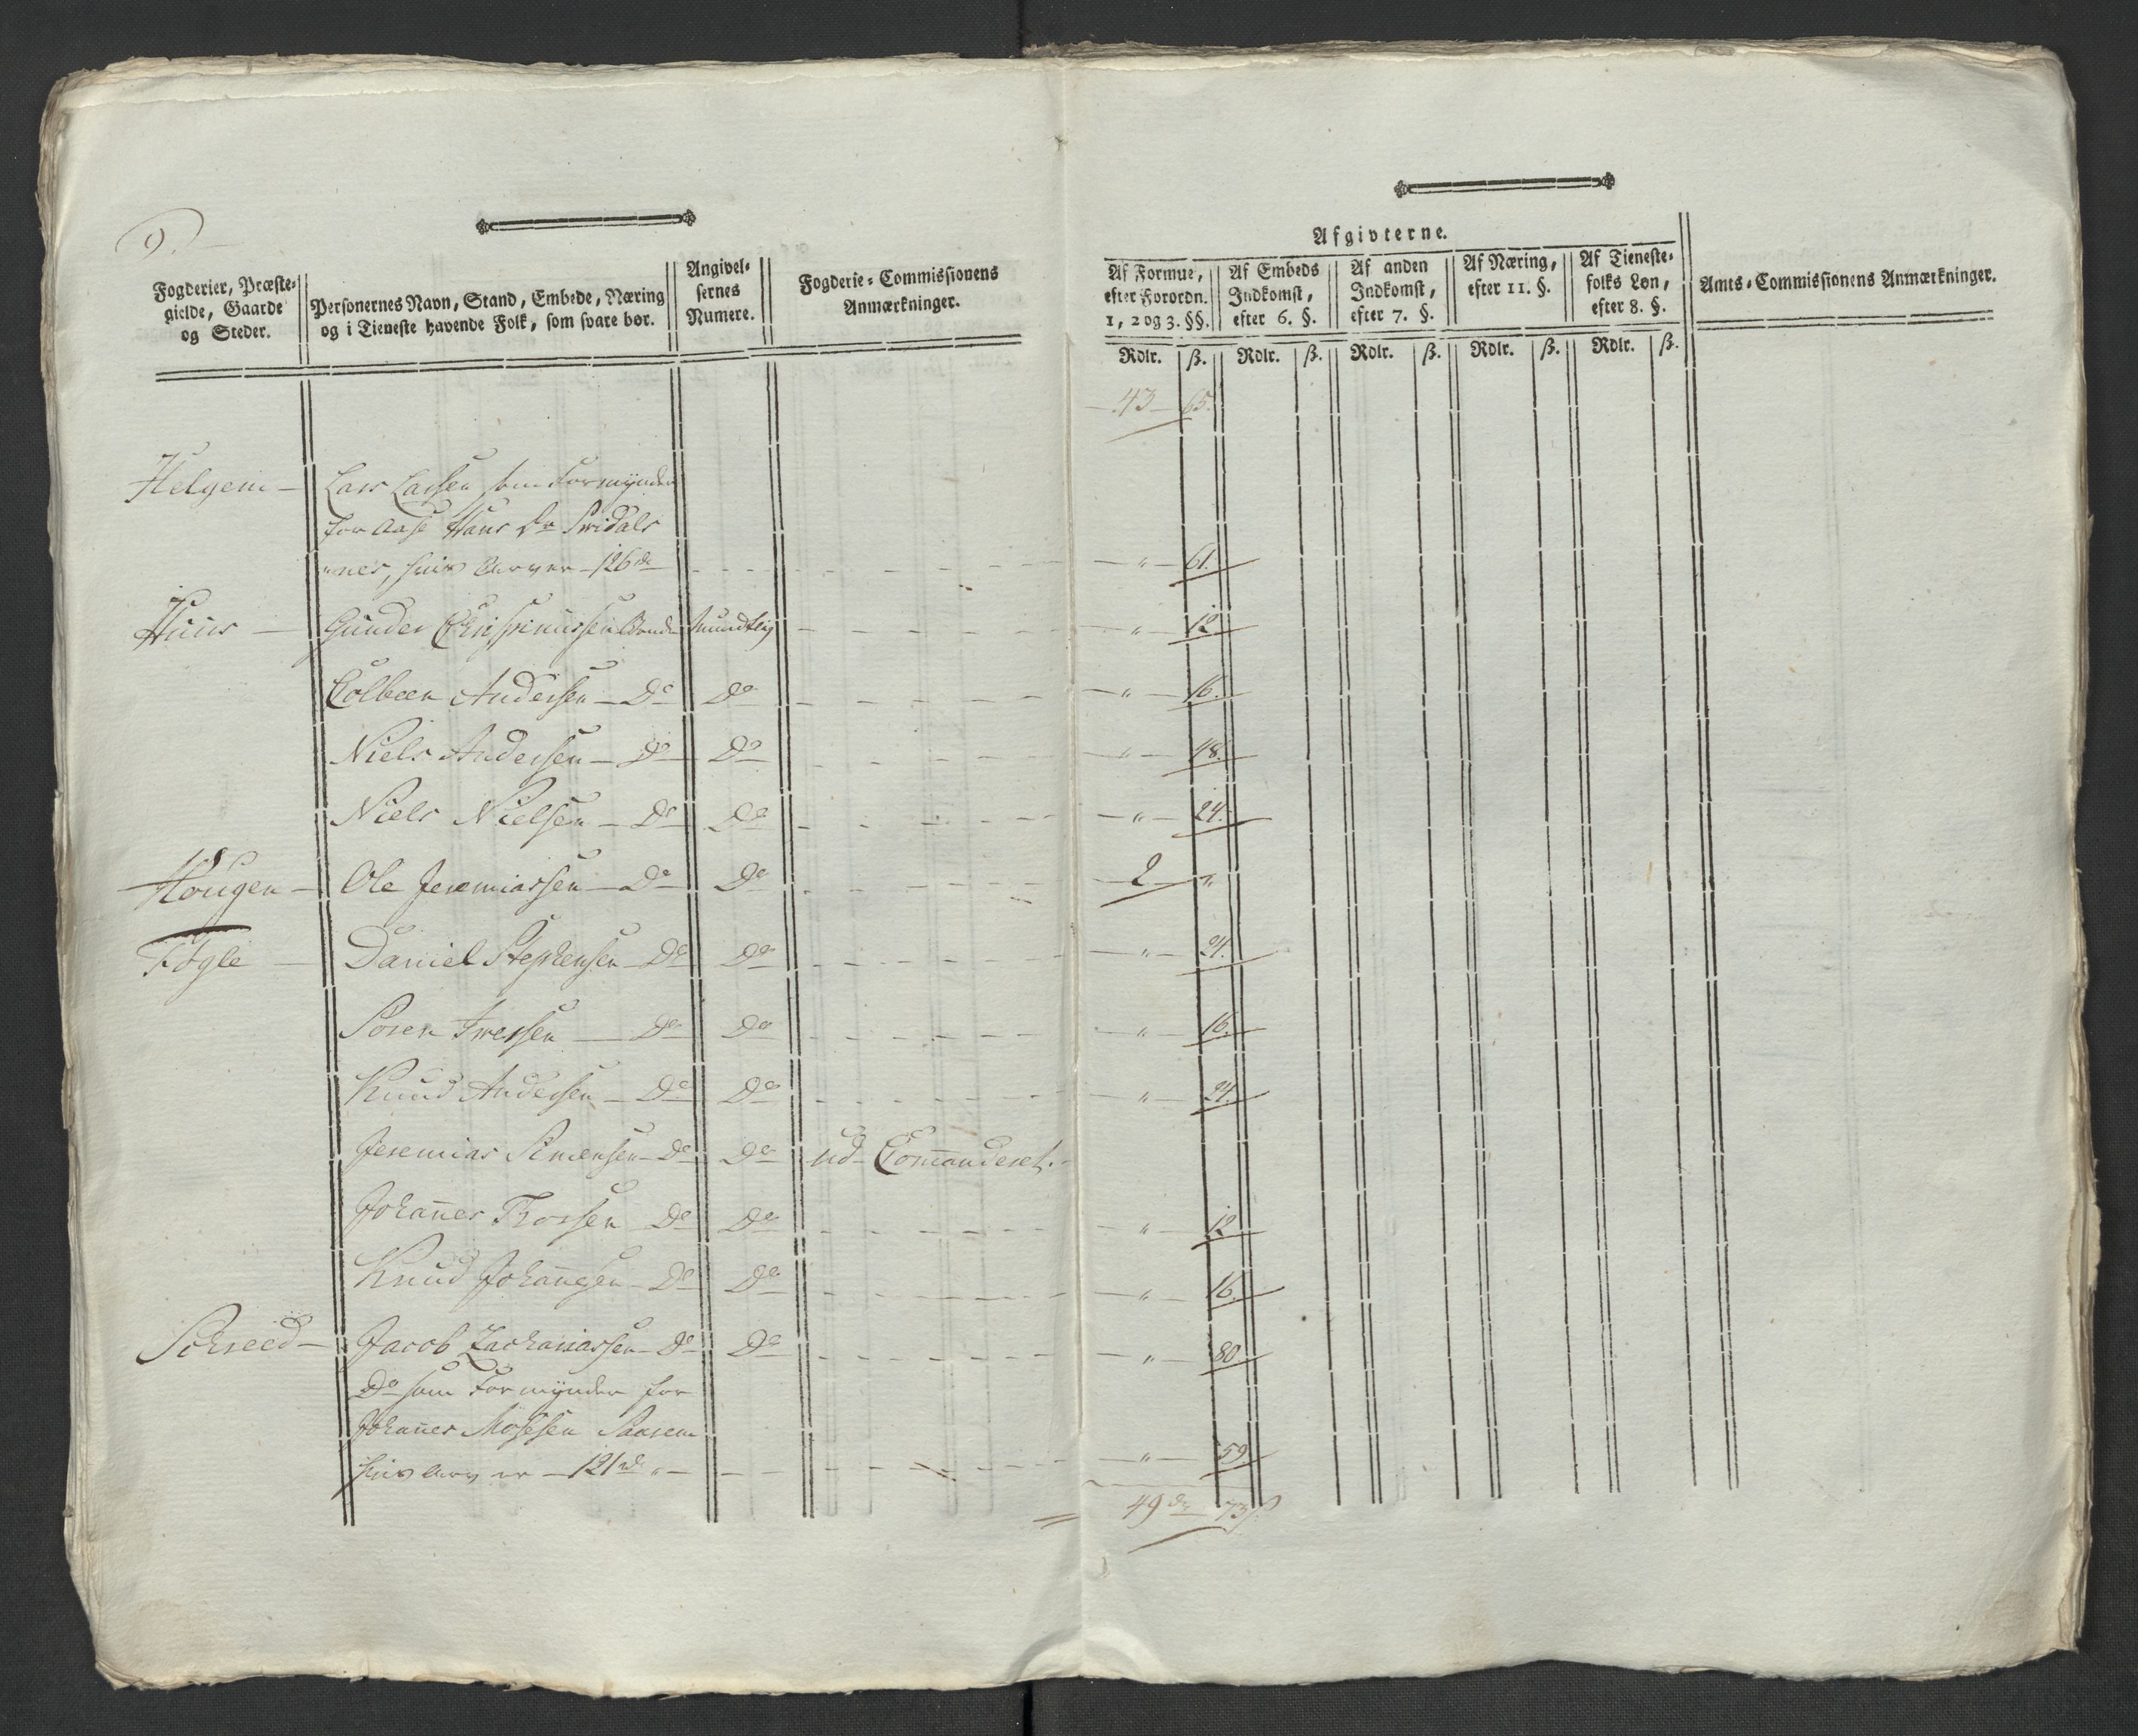 9.
Fogderier, Præste-
gielde, Gaarde
og Steder.
Personernes Navn, Stand, Embede, Næring
og i Tieneste havende Folk, som svare bør.
Angivel-
sernes
Numere.
Fogderie-Commissionens
Anmærkninger.
Afgivterne.
Af Formue,
efter Forordn.
1, 2 og 3. §§.
Af Embeds
Indkomst,
efter 6. §.
Af anden
Indkomst,
efter 7. §.
Af Næring,
efter 11. §.
Af Tieneste-
folks Løn,
efter 8. §.
Amts-Commissionens Anmærkninger.
Rdlr. ß. Rdlr. ß. Rdlr. ß. Rdlr. ß. Rdlr. ß.
43 65.
Helgem Lars Larsen som Formynder
for Aase Hans Dr
hvis Arv er 126 " 61.
Huus Gunder Bonde Mundtlig " 12
Andersen Do Do " 16.
Niels Andersen Do Do " 48.
Niels Nielsen Do Do " 24.
Hougen Ole Jeremiassen Do Do 2 "
Daniel Stephensen Do Do " 24.
Soren Iwersen Do Do " 16.
Knud Andersen Do Do " 24.
Jeremias Simensen Do Do ud Com̅anderet.
Johan̅es Thorsen Do Do " 12
Knud Johan̅esen Do Do " 16.
Schreed Jacob Zachariassen Do Do " 80
Do som Formynder for
Johan̅es Mosesen
hvis Arv er 121 " 59
49 73